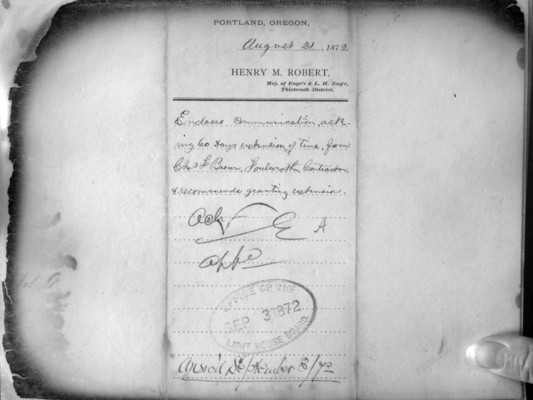 PORTLAND, OREGON,
August 21, 1872.
HENRY M. ROBERT,
Maj. of Eng'rs & L. H. Eng'r,
Thirteenth District.
Encloses communication, ask-
ing 60 days extension of time, from
Chas F Brown, Contractor
& recommends granting extension.
Ack
E A
appd
OFFICE OF THE
SEP 3 1872
LIGHT HOUSE BOARD
Ans'd September 3/72